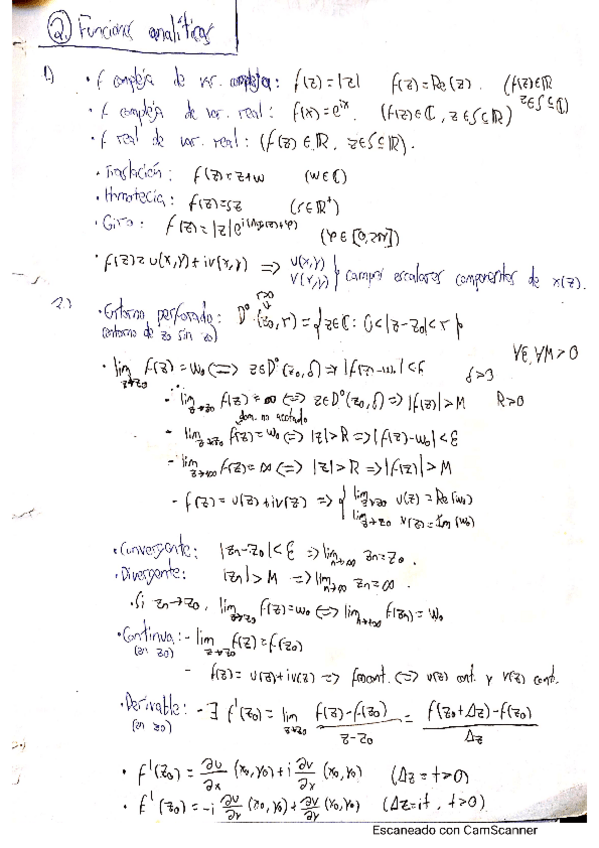 2. Funciones analíticas
1.) · f compleja de var. compleja: f(z)=|z| f(z)=Re(z). (f(z)∈ℝ z∈S⊆ℂ)
· f compleja de var. real: f(x)=e^{ix} (f(z)∈ℂ, z∈S⊆ℝ)
· f real de var. real: (f(z)∈ℝ, z∈S⊆ℝ).
· Traslación: f(z)=z+w (w∈ℂ)
· Homotecia: f(z)=sz (s∈ℝ⁺)
· Giro: f(z)=|z|e^{i(Arg(z)+φ)} (φ∈[0,2π])
· f(z)=u(x,y)+iv(x,y) ⇒ u(x,y) v(x,y) } campos escalares componentes de x(z).
2.) · Entorno perforado: D°(z₀,r)={z∈ℂ: 0<|z-z₀|<r}
(entorno de z₀ sin z₀) r>0
∀ε, ∀M>0
· lim_{z→z₀} f(z)=w₀ ⟺ z∈D°(z₀,δ) ⇒ |f(z)-w₀|<ε δ>0
· lim_{z→z₀} f(z)=∞ ⟺ z∈D°(z₀,δ) ⇒ |f(z)|>M R>0
dom. no acotado
- lim_{z→∞} f(z)=w₀ ⟺ |z|>R ⇒ |f(z)-w₀|<ε
- lim_{z→∞} f(z)=∞ ⟺ |z|>R ⇒ |f(z)|>M
- f(z)=u(z)+iv(z) ⇒ { lim_{z→z₀} u(z)=Re(w₀)
lim_{z→z₀} v(z)=Im(w₀)
· Convergente: |zn-z₀|<ε ⇒ lim_{n→∞} zn=z₀.
· Divergente: |zn|>M ⇒ lim_{n→∞} zn=∞.
· Si zn→z₀, lim_{z→z₀} f(z)=w₀ ⟺ lim_{n→+∞} f(zn)=w₀
· Continua: - lim_{z→z₀} f(z)=f(z₀)
(en z₀)
- f(z)=u(z)+iv(z) ⇒ f cont. ⟺ u(z) cont. y v(z) cont.
· Derivable: - ∃ f'(z₀)= lim_{z→z₀} (f(z)-f(z₀))/(z-z₀) = (f(z₀+Δz)-f(z₀))/Δz
(en z₀)
· f'(z₀)= ∂u/∂x (x₀,y₀)+i ∂v/∂x (x₀,y₀) (Δz=t>0)
· f'(z₀)=-i ∂u/∂y (x₀,y₀)+ ∂v/∂y (x₀,y₀) (Δz=it, t>0)
Escaneado con CamScanner